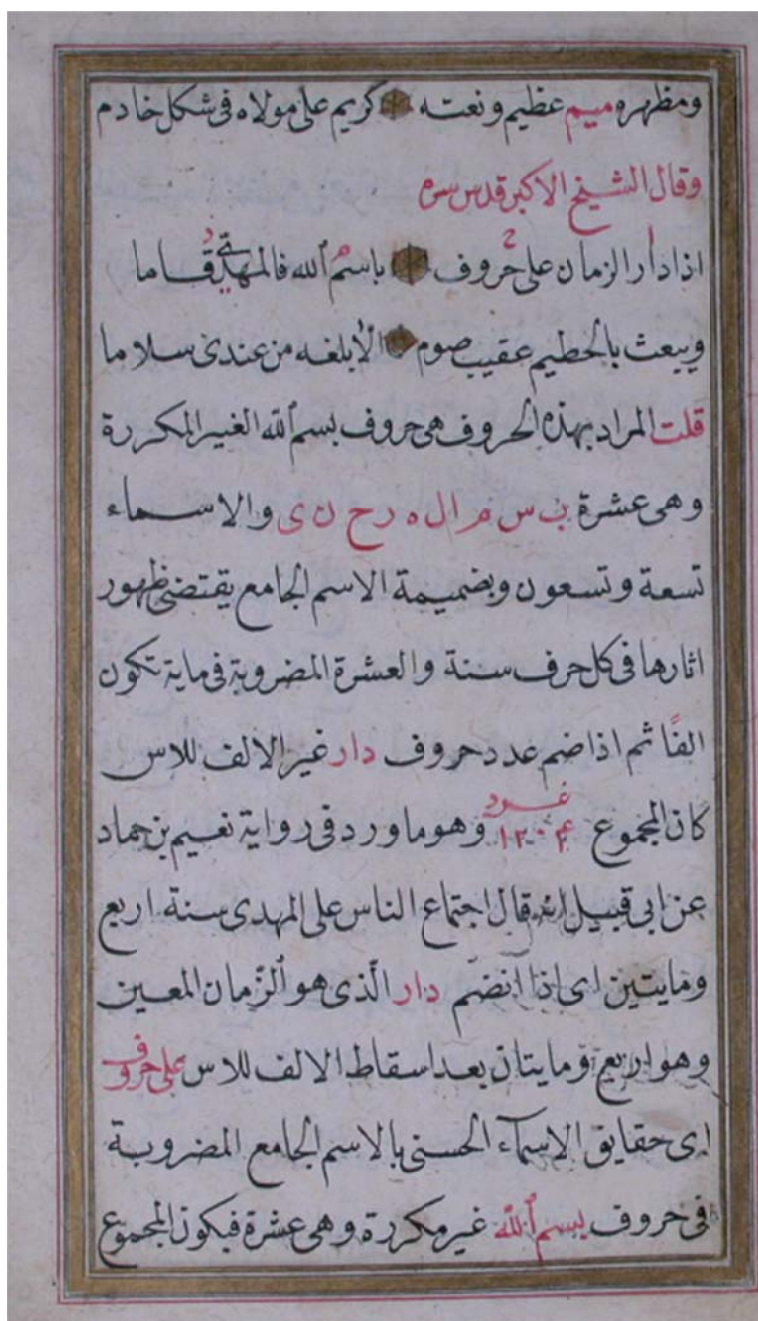 ومظهره ميم عظيم ونعته كريم على مولاه فى شكل خادم
وقال الشيخ الاكبر قدس سره
اذا دار الزمان على حروف باسم ألله فالمهدى قاما
ويبعث بالحطيم عقيب صوم الا بلغه من عندى سلاما
قلت المراد بهذه الحروف هى حروف بسم ألله الغير المكررة
وهى عشرة ب س م ا ل ه ر ح ن ى والاسماء
تسعة وتسعون وبضميمة الاسم الجامع يقتضى ظهور
اثارها فى كل حرف سنة والعشرة المضروبة فى ماية تكون
الفًا ثم اذا ضم عدد حروف دار غير الالف للاس
غرد
كان المجموع ١٢٠٤ وهو ما ورد فى رواية نعيم بن حماد
عن ابى قبيل انه قال اجتماع الناس على المهدى سنة اربع
ومايتين اى اذا انضم دار الّذى هو ألزّمان المعين
وهو اربع ومايتان بعد اسقاط الالف للاس على حروف
اى حقايق الاسمآء الحسنى بالاسم الجامع المضروبة
فى حروف بسم ألله غير مكررة وهى عشرة فيكون المجموع